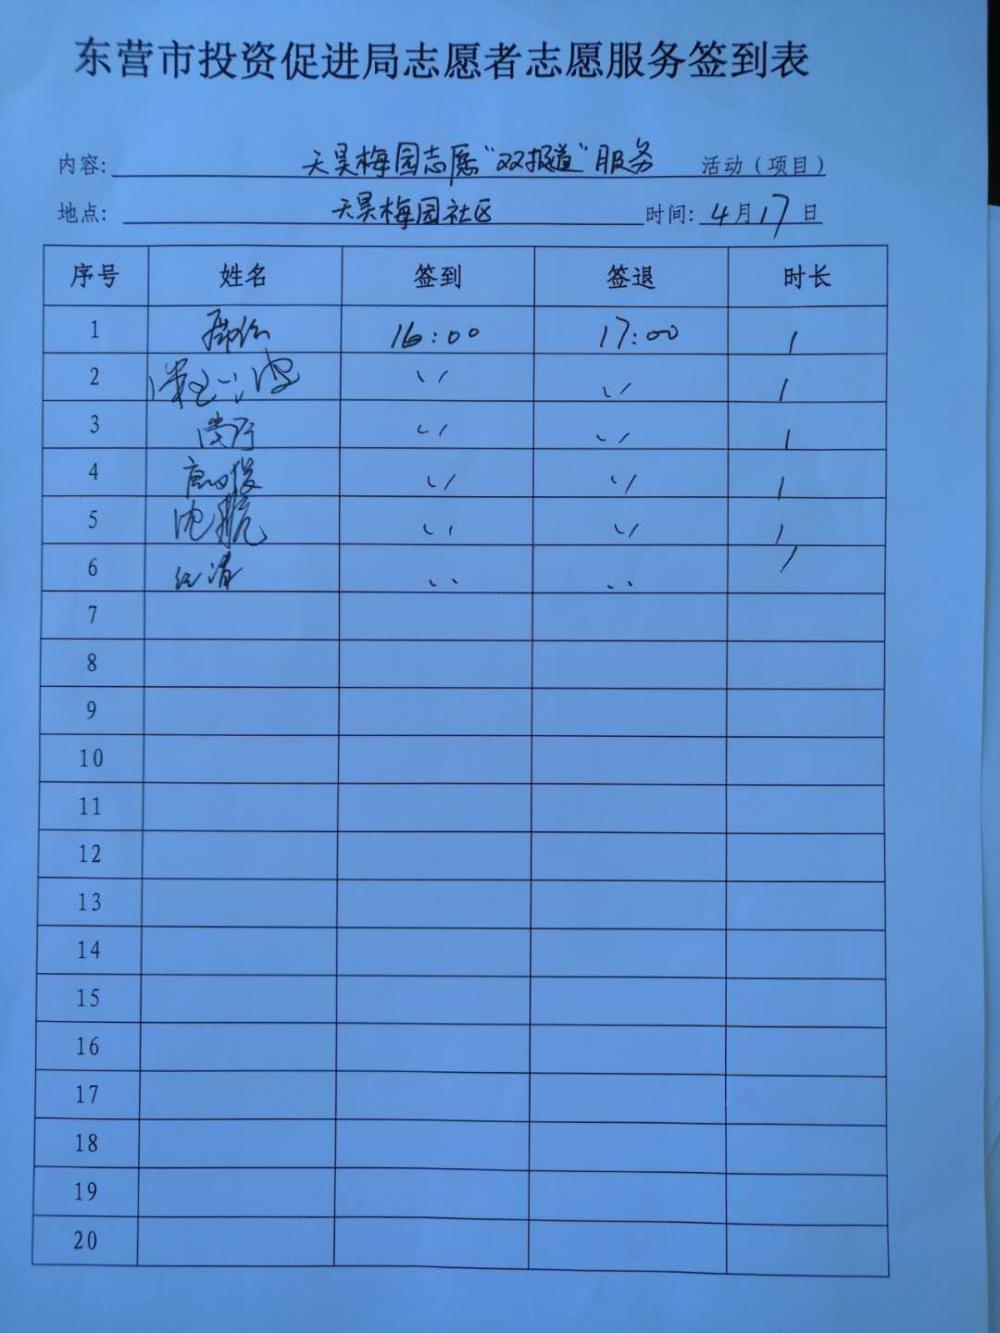 东营市投资促进局志愿者志愿服务签到表
内容: 天昊梅园志愿“双报道”服务 活动（项目）
地点: 天昊梅园社区 时间: 4月17日
序号 姓名 签到 签退 时长
1 16:00 17:00 1
2 〃 〃 1
3 〃 〃 1
4 〃 〃 1
5 沈航 〃 〃 1
6 〃 〃 1
7
8
9
10
11
12
13
14
15
16
17
18
19
20